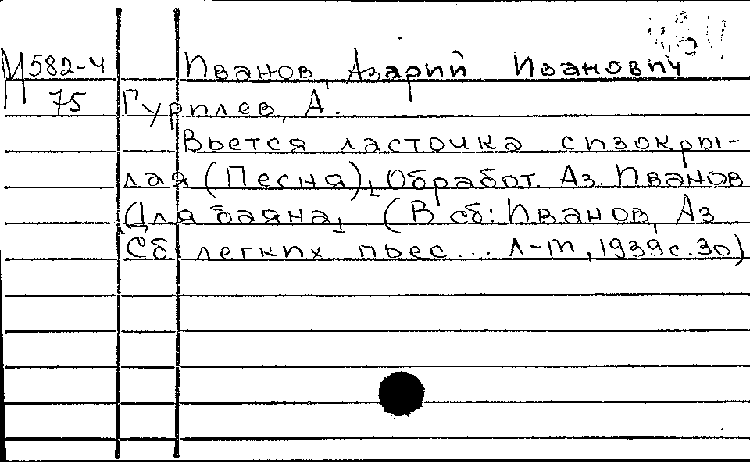 М582-4 Иванов, Азарий Иванович
75 Гурилев, А.
Вьется ласточка сизокры-
лая (Песня), Обработ. Аз. Иванов
Для баяна, (В сб: Иванов, Аз
Сб легких пьес... Л-М, 1939 с. 30)